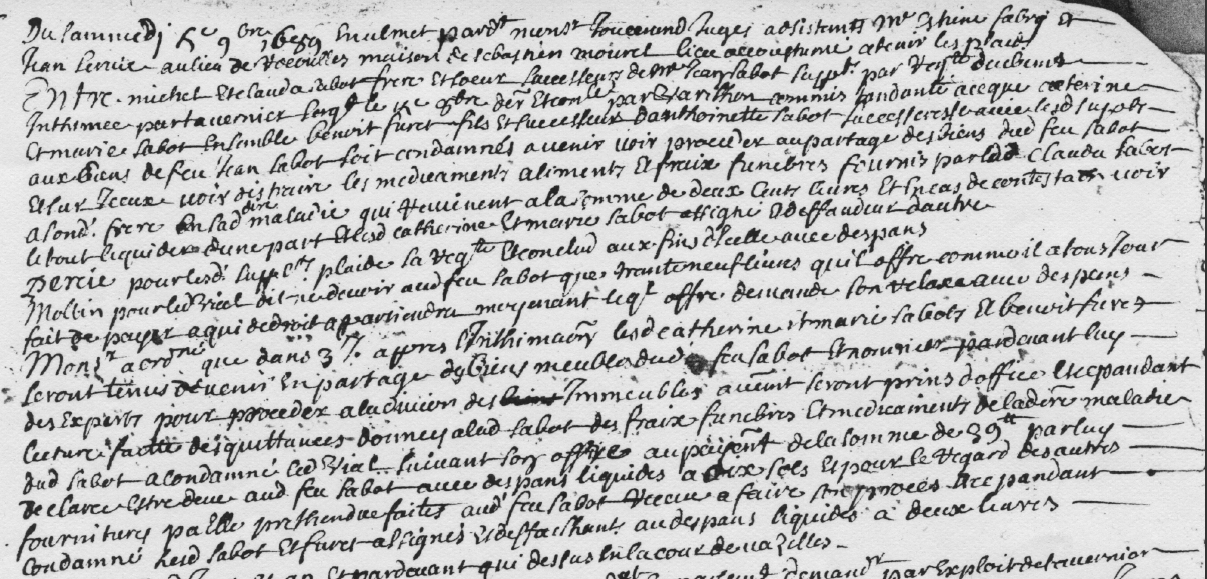 Du sammedi 5e 9bre 1689 En ulmet pardt monsr Juge assistants Me sabry Et
Jean Servie au lieu de maison de sebastien mourel lieu accoustumé a tenir les plaids
Entre michel Et clauda sabot frere Et soeur successeurs de Me Jean sabot suppts par reqte du
Inthimee par tavernier sergt le 9bre der Et comls par Varithon commis tandante ac que caterine
Et marie sabot Ensemble benoit furet fils Et successeur d'anthoinette sabot successeresse avec lesd supts
aux biens de feu Jean sabot soit condamnés a venir voir proceder au partage des biens dud feu sabot
Et sur Iceux voir distraire les medicaments aliments Et fraix funebres fournis par lad Clauda sabot
a sond. frere En sad dre maladie qui revienent a la somme de deux Cents livres Et En cas de contestaon voir
le tout liquider d'une part Et lesd catherine Et marie sabot assigné Et deffandeur d'autre
percie pour lesd. suppts plaide sa reqte Et conclud aux fins d'Icelle avec despans
Mollin pour led Vial dit ne devoir aud feu sabot que trante neuf livres qu'il offre comme il a tousjour
fait de payer a qui de droit appartiendra moyenant leql offre demande son relaxe avec despans
Monsr a ordné que dans 3 jrs appres l'Inthimaon lesd catherine Et marie sabots Et benoit furet
seront tenus de venir En partage des biens meubles dud feu sabot Et nommer pardevant luy
des Experts pour proceder a la division des Immeubles aultremt seront prins d'office Et cepandant
lecture faitte des quittances donneés alad sabot des fraix funebres Et medicaments de la dre maladie
dud sabot a condamné led Vial suivant son offre au payemt de la somme de 39ll par luy
declare Estre deue aud feu sabot avec despans liquides a dix sols Et pour le regard des autres
fournitures pa Elle pretendue faites aud feu sabot receue a faire son proces Et cepandant
condamné lesd sabot Et furet assignés Et deffaillants au despans liquides a deux livres
Et pardevant qui dessus En la cour de vazeilles.
demandr par Exploit de tavernier